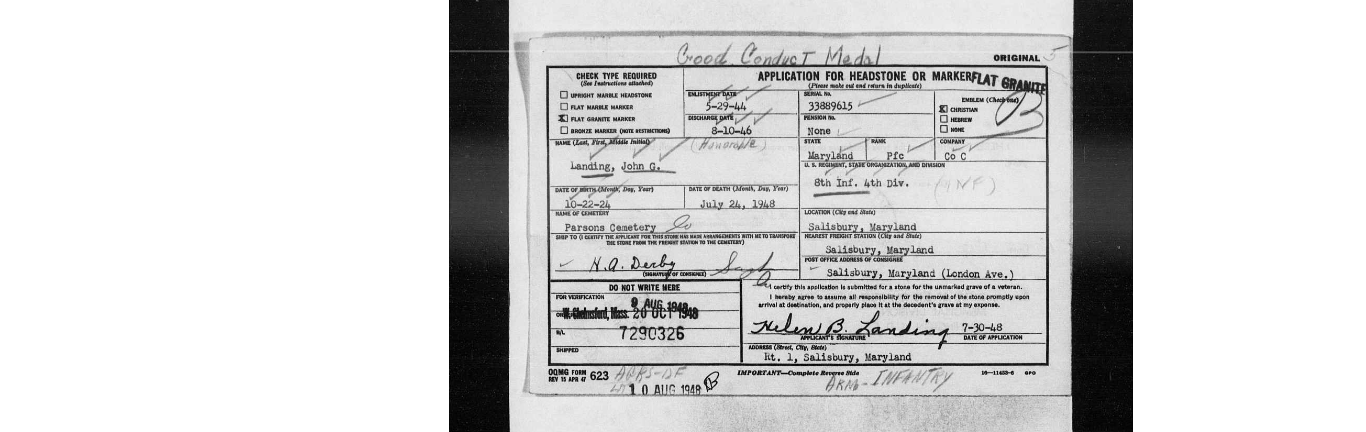 Good Conduct Medal
ORIGINAL 5
CHECK TYPE REQUIRED
(See Instructions attached)
UPRIGHT MARBLE HEADSTONE
FLAT MARBLE MARKER
X FLAT GRANITE MARKER
BRONZE MARKER (NOTE RESTRICTIONS)
APPLICATION FOR HEADSTONE OR MARKER FLAT GRANITE
(Please make out and return in duplicate)
ENLISTMENT DATE
5-29-44
DISCHARGE DATE
8-10-46
(Honorable)
SERIAL No.
33889615
PENSION No.
None
EMBLEM (Check one)
X CHRISTIAN
HEBREW
NONE
NAME (Last, First, Middle Initial)
Landing, John G.
STATE RANK COMPANY
Maryland Pfc Co C
U. S. REGIMENT, STATE ORGANIZATION, AND DIVISION
8th Inf. 4th Div. (INF)
DATE OF BIRTH (Month, Day, Year) DATE OF DEATH (Month, Day, Year)
10-22-24 July 24, 1948
NAME OF CEMETERY
Parsons Cemetery
LOCATION (City and State)
Salisbury, Maryland
SHIP TO (I CERTIFY THE APPLICANT FOR THIS STONE HAS MADE ARRANGEMENTS WITH ME TO TRANSPORT
THE STONE FROM THE FREIGHT STATION TO THE CEMETERY)
H.A. Derby
(SIGNATURE OF CONSIGNEE)
NEAREST FREIGHT STATION (City and State)
Salisbury, Maryland
POST OFFICE ADDRESS OF CONSIGNEE
Salisbury, Maryland (London Ave.)
DO NOT WRITE HERE
FOR VERIFICATION
9 AUG 1948
W. Chelmsford, Mass. 20 OCT 1948
B/L
7290326
SHIPPED
I certify this application is submitted for a stone for the unmarked grave of a veteran.
I hereby agree to assume all responsibility for the removal of the stone promptly upon
arrival at destination, and properly place it at the decedent's grave at my expense.
Helen B. Landing 7-30-48
APPLICANT'S SIGNATURE DATE OF APPLICATION
ADDRESS (Street, City, State)
Rt. 1, Salisbury, Maryland
OQMG FORM
REV 15 APR 47 623
IMPORTANT—Complete Reverse Side
16—11433-6 GPO
10 AUG 1948
ARM-INFANTRY